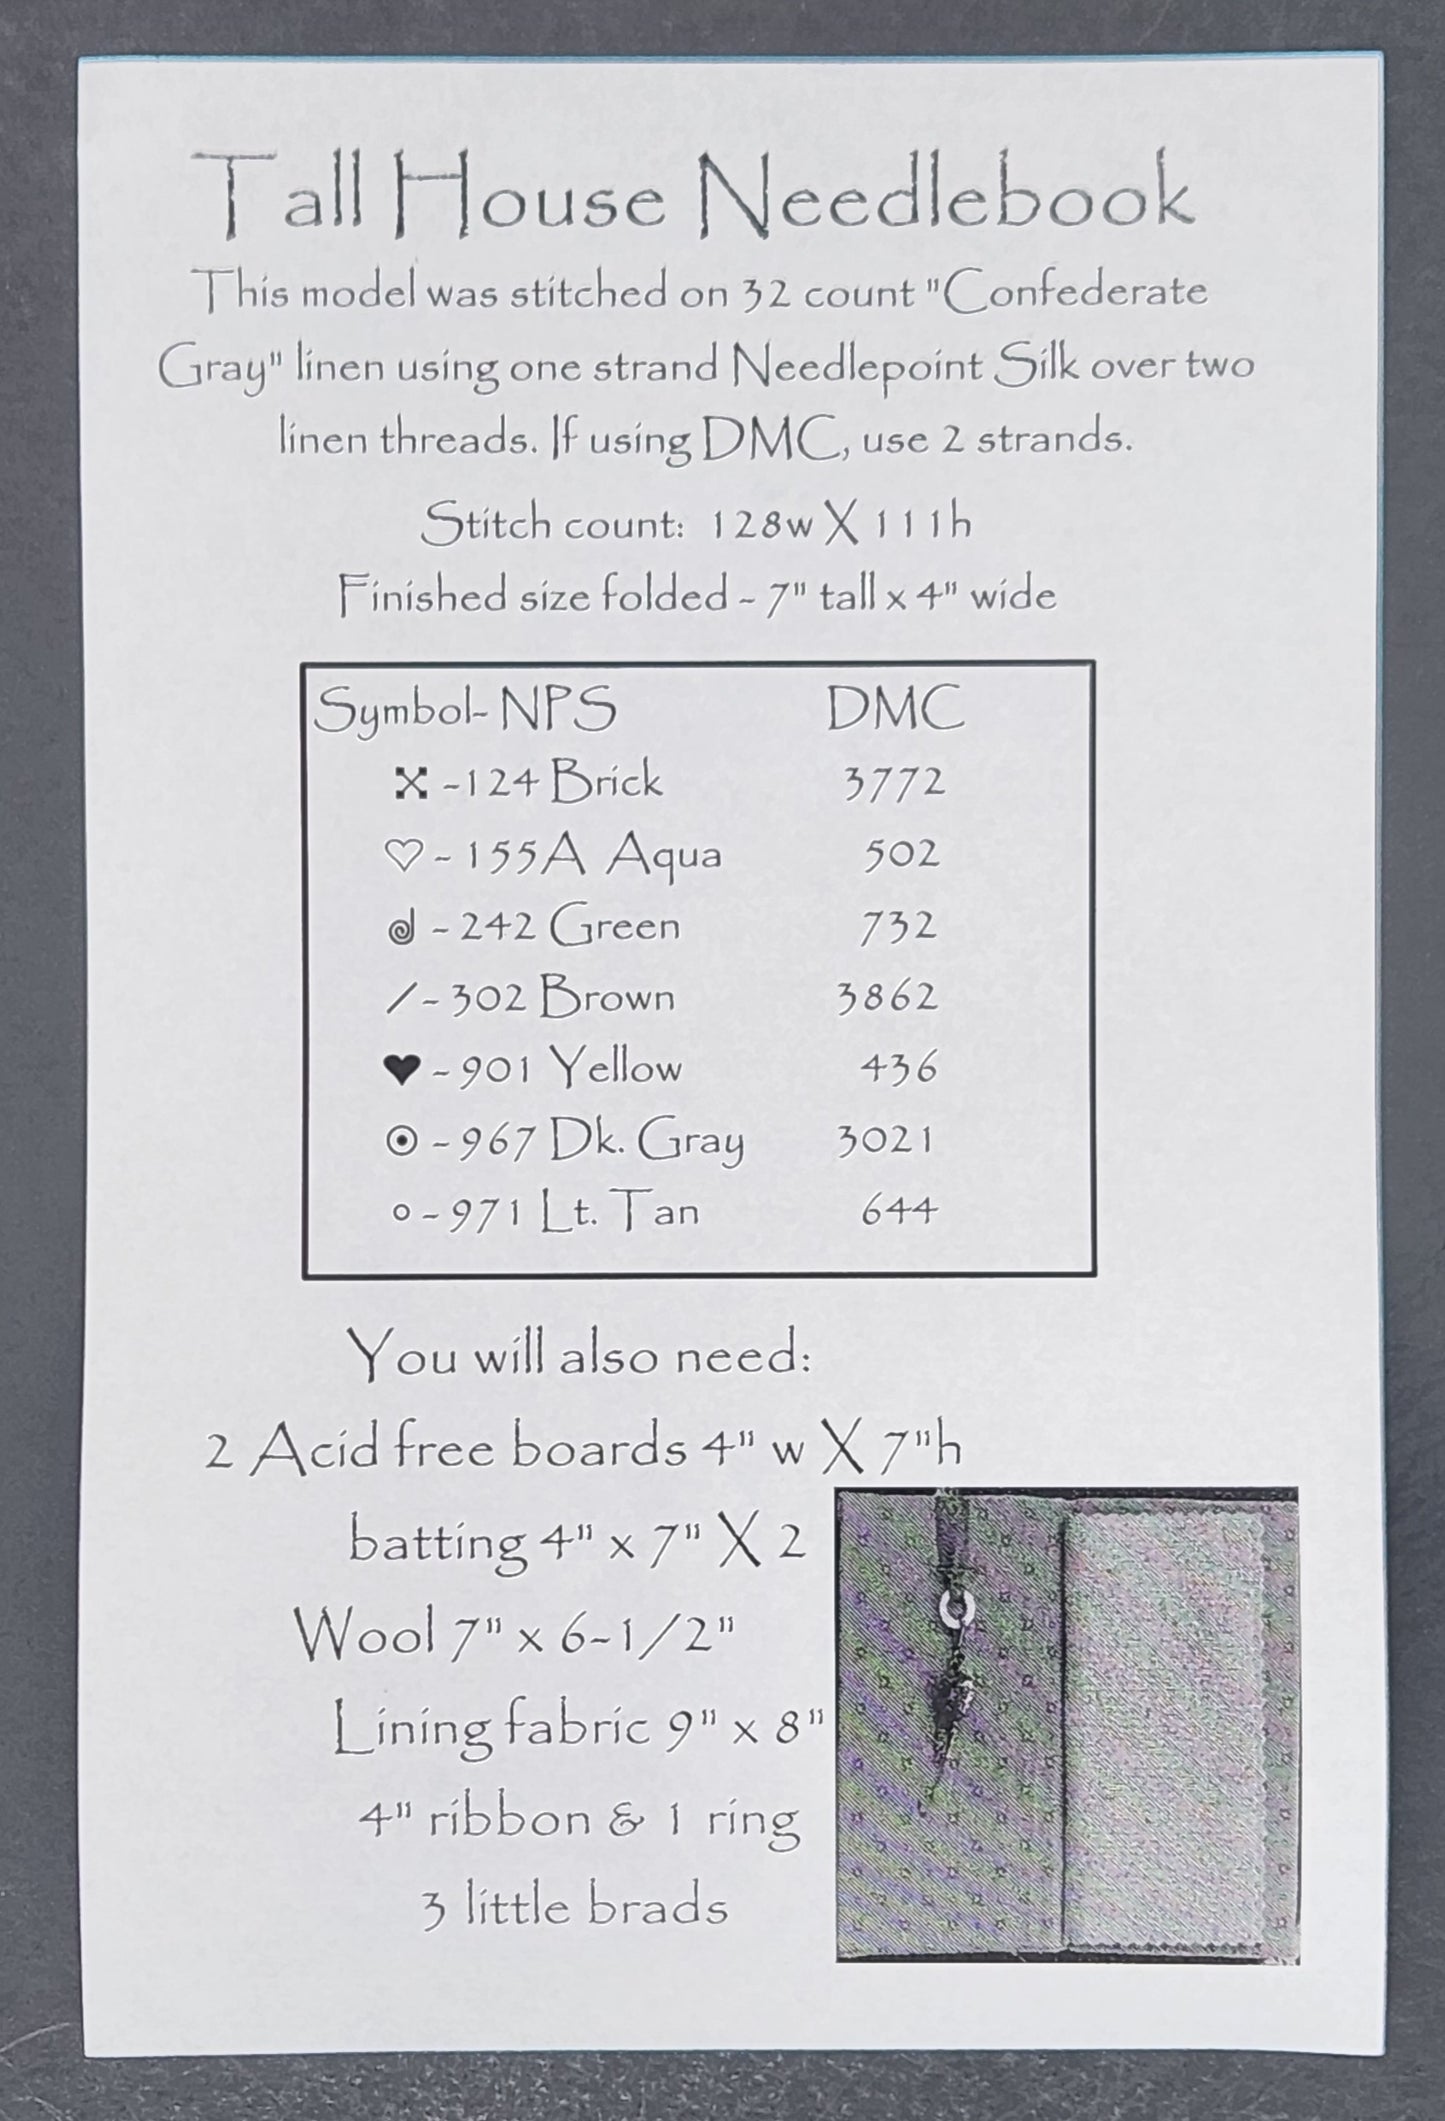 Tall House Needlebook
This model was stitched on 32 count "Confederate
Gray" linen using one strand Needlepoint Silk over two
linen threads. If using DMC, use 2 strands.
Stitch count: 128w X 111h
Finished size folded ~ 7" tall x 4" wide
Symbol- NPS DMC
~124 Brick 3772
♡ ~ 155A Aqua 502
~ 242 Green 732
/ ~ 302 Brown 3862
♥ ~ 901 Yellow 436
⊙ ~ 967 Dk. Gray 3021
○ ~ 971 Lt. Tan 644
You will also need:
2 Acid free boards 4" w X 7"h
batting 4" x 7" X 2
Wool 7" x 6-1/2"
Lining fabric 9" x 8"
4" ribbon & 1 ring
3 little brads